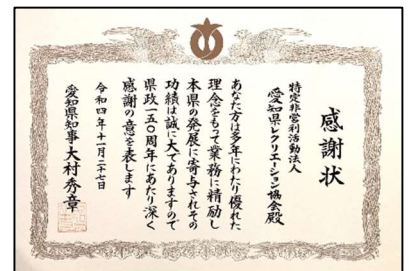 感謝状
特定非営利活動法人
愛知県レクリエーション協会殿
あなた方は多年にわたり優れた
理念をもって業務に精励し
本県の発展に寄与されその
功績は誠に大でありますので
県政一五〇周年にあたり深く
感謝の意を表します
令和四年十一月二十七日
愛知県知事大村秀章